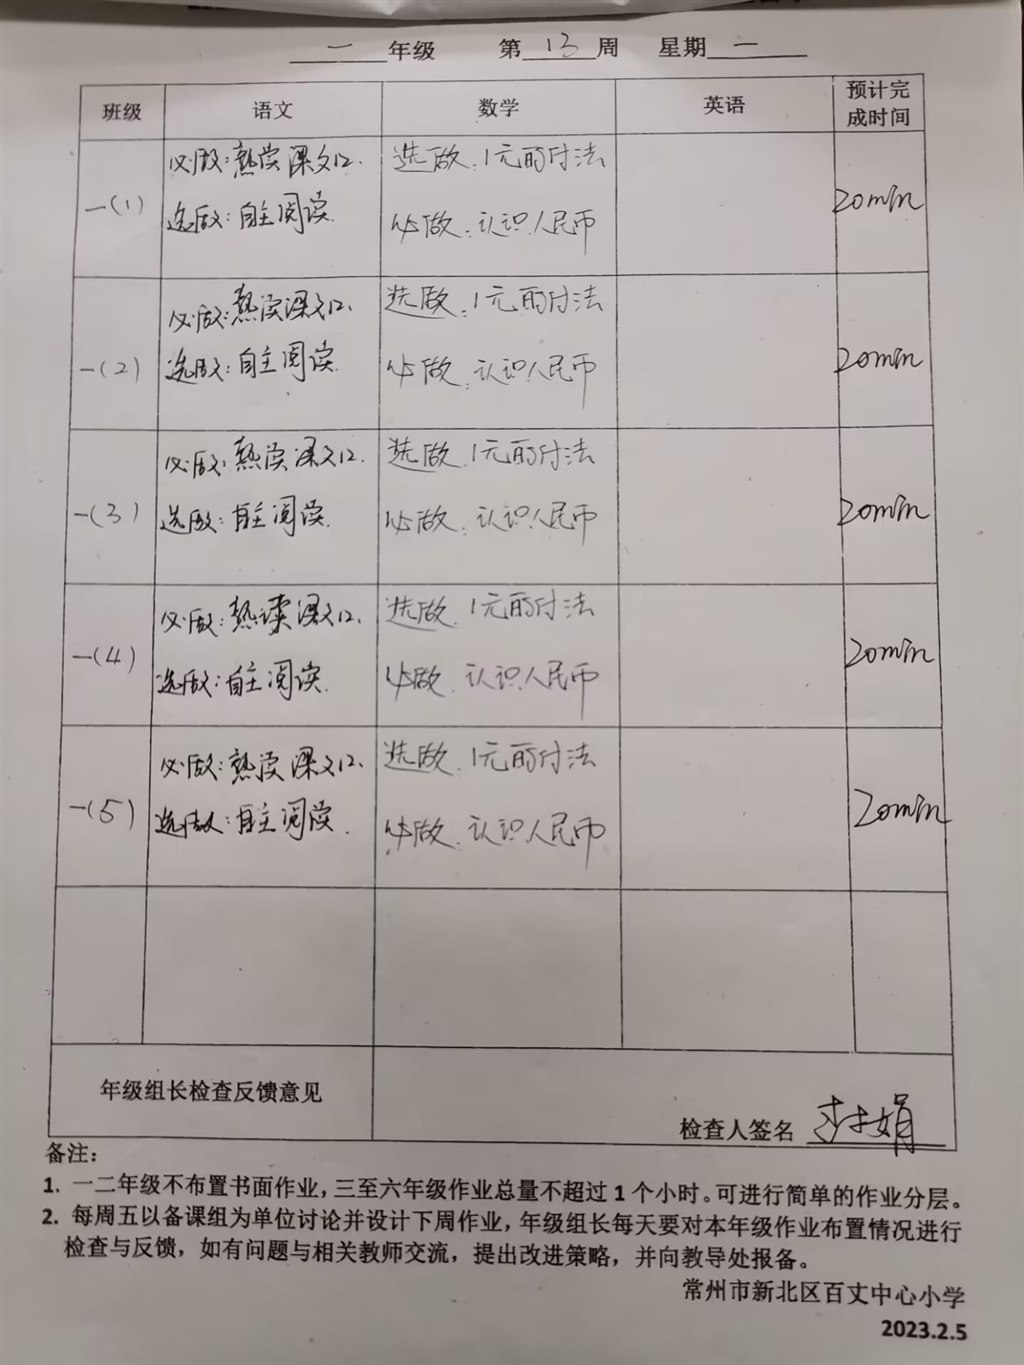 一 年级 第 13 周 星期 一
班级 语文 数学 英语 预计完成时间
一(1) 必做：熟读课文12. 选做.1元的付法 20min
选做：自主阅读. 必做.认识人民币
一(2) 必做：熟读课文12. 选做.1元的付法 20min
选做：自主阅读. 必做.认识人民币
一(3) 必做：熟读课文12. 选做.1元的付法 20min
选做：自主阅读. 必做.认识人民币
一(4) 必做：熟读课文12. 选做.1元的付法 20min
选做：自主阅读. 必做.认识人民币
一(5) 必做：熟读课文12. 选做.1元的付法 20min
选做：自主阅读. 必做.认识人民币
年级组长检查反馈意见
检查人签名
备注：
1. 一二年级不布置书面作业，三至六年级作业总量不超过 1 个小时。可进行简单的作业分层。
2. 每周五以备课组为单位讨论并设计下周作业，年级组长每天要对本年级作业布置情况进行
检查与反馈，如有问题与相关教师交流，提出改进策略，并向教导处报备。
常州市新北区百丈中心小学
2023.2.5